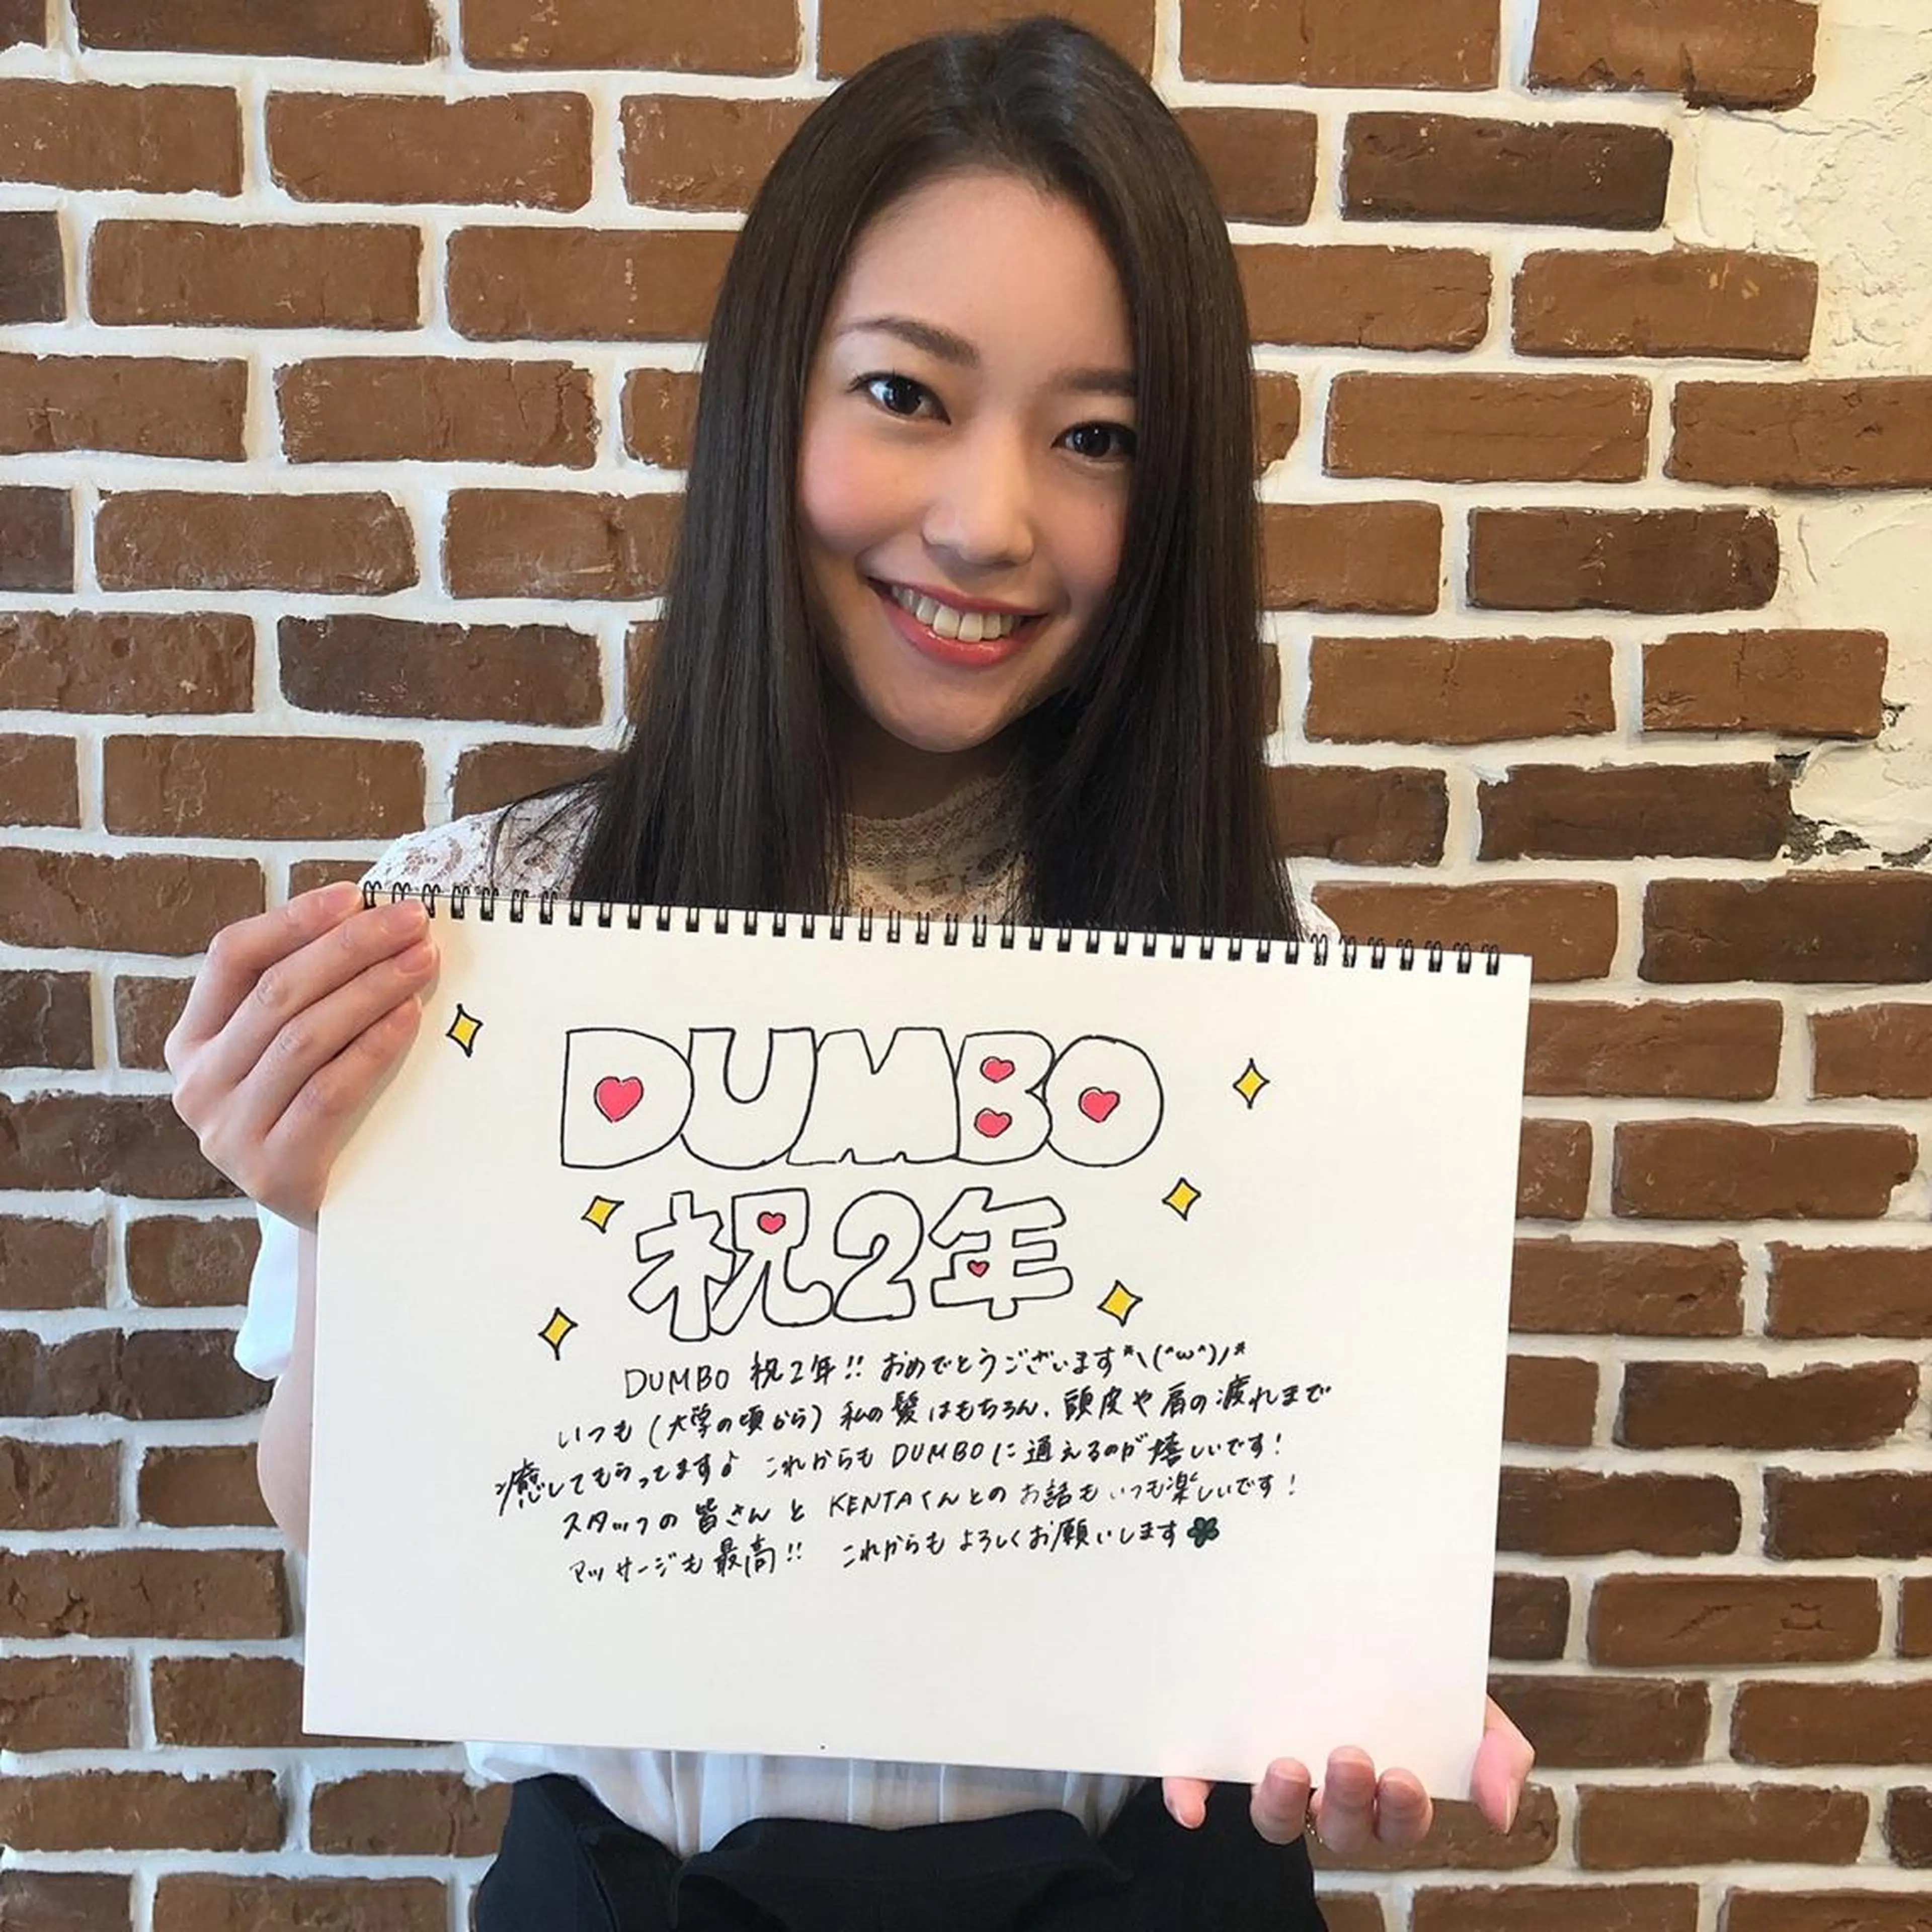 DUMBO
祝2年
DUMBO 祝2年!! おめでとうございます*\(^ω^)/*
いつも(大学の頃から)私の髪はもちろん、頭皮や肩の疲れまで
癒してもらってます♪ これからも DUMBOに通えるのが嬉しいです!
スタッフの皆さんと KENTAくんとのお話もいつも楽しいです!
マッサージも最高!! これからもよろしくお願いします